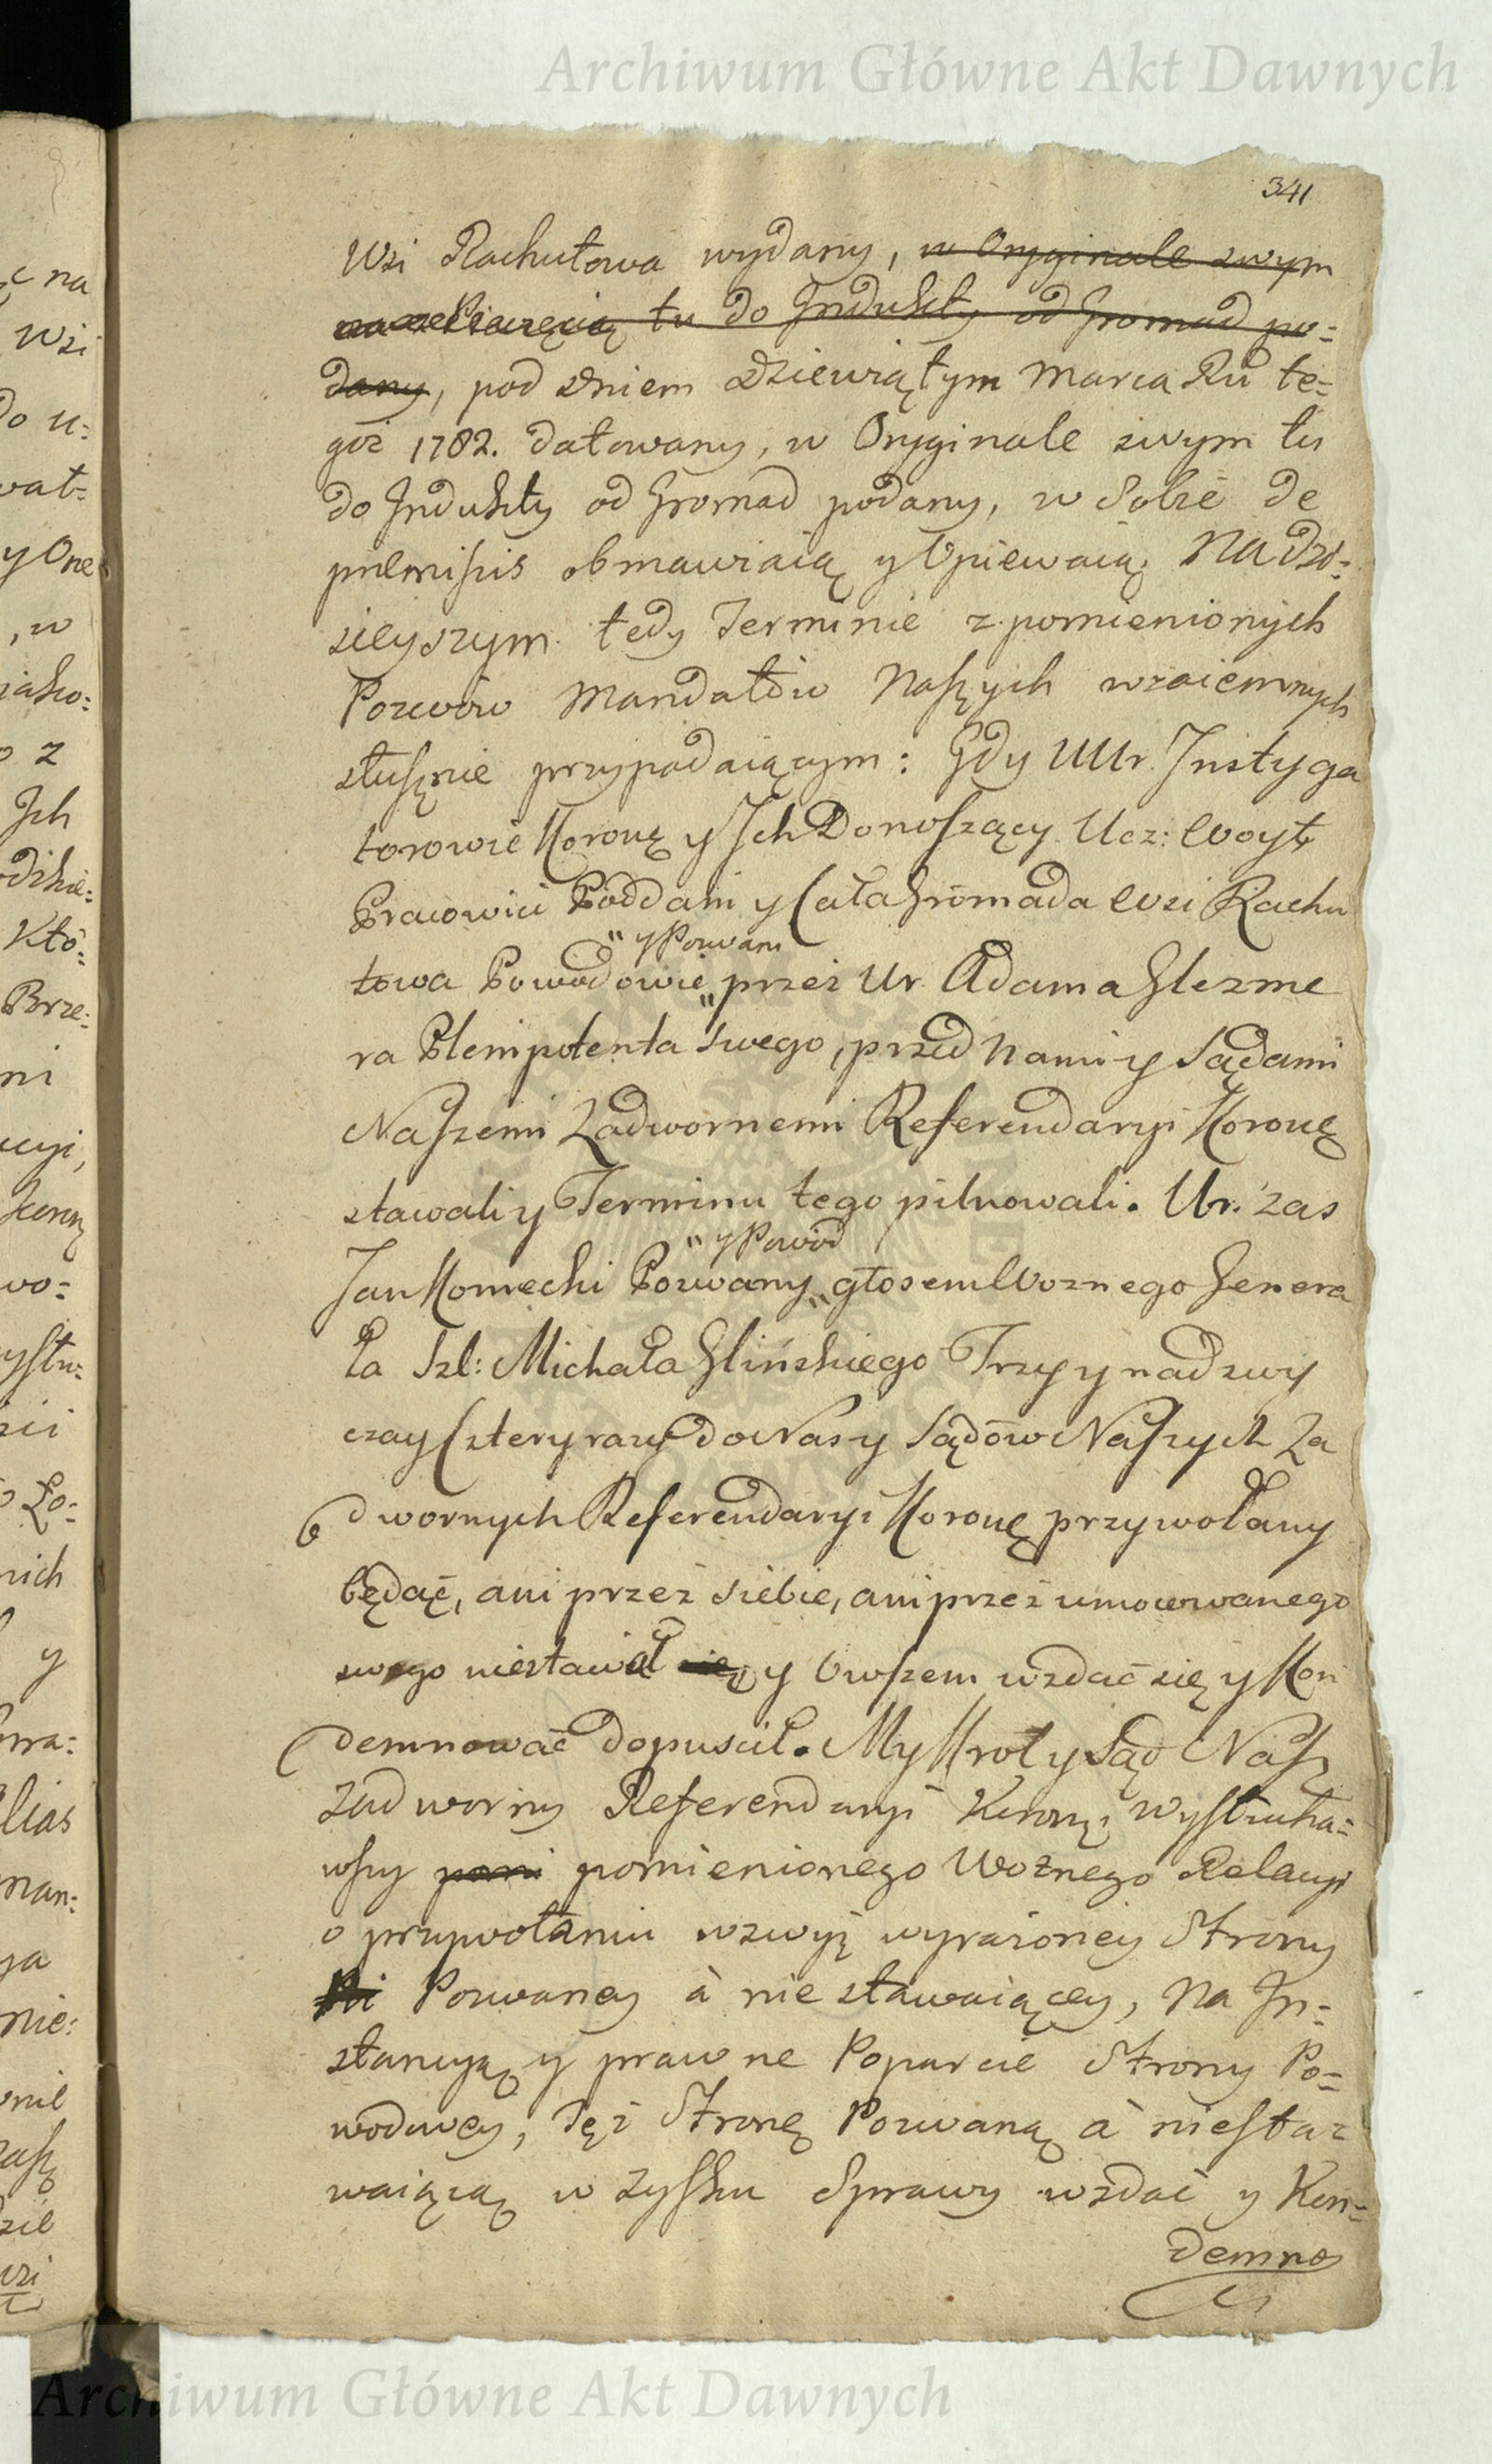 Archiwum Główne Akt Dawnych
341
Wsi Rachutowa wydany, w Oryginale swym
Pieczęcią tu do Indukty od Gromad po=
dany, pod dniem Dziewiątym Marca Ru te=
goż 1782. datowany, w Oryginale swym tu
do Indukty od Gromad podany, w Sobie de
premissis obmawiaią y Opiewaią. Na dzi=
sieyszym tedy Terminie z pomienionych
Pozwów Mandatów Naszych wzaiemnych
słusznie przypadaiącym: Gdy UUr. Instyga
torowie Koronę y Ich Donoszący Ucz: Woyt
Pracowici Poddani y Cała Gromada Wsi Rachu
" y Pozwani
towa Powodowie " przez Ur Adama Glezme
ra Plenipotenta swego, przed Nami y Sądami
Naszemi Zadwornemi Referendaryi Koronę
stawali y Terminu tego pilnowali. Ur. zas
" y Powod
Jan Komecki Pozwany " głosem Woznego Genera
ła Szl: Michała Glińskiego Trzy y nadzwy
czay Cztery razy do Nas y Sądów Naszych Za
dwornych Referendaryi Koronę przywołany
będąc, ani przez siebie, ani przez umocowanego
swego niestawał się y Owszem wzdać się y Kon
demnować dopuscił. My Krol y Sąd Nasz
zadworny Referendaryi Koronę, Wysłucha=
wszy pomi pomienionego Woznego Relacyi
o przywołaniu wzwyż wyrażoney Strony
Pozwaney à nie stawaiącey, Na In=
stancyą y prawne Poparcie Strony Po=
wodowey, Tęż Stronę Pozwaną à niesta=
waiącą w zysku Sprawy wzdać y Kon=
demno
Archiwum Główne Akt Dawnych